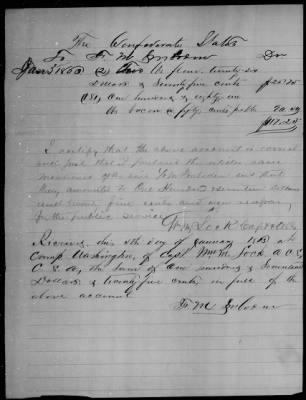 The Confederate States
To F. M. Imboden Dr
Jany 5 1863 (2) Two bbs flour twenty six
Dollars & Seventy five cents $26.75
(181) One hundred & eighty one
lbs bacon @ fifty cents per lb 90.50
$117.25
I certify that the above account is correct
and just, that I purchased the articles above
mentioned of F M Imboden and that
they amounted to One Hundred & seventeen dollars
and twenty five cents and was necessary
for the public service
Wm Lock Capt &
Received this 8th day of January 1863 at
Camp Washington, of Capt Wm Lock A. C. S.
C. S. A. the sum of One hundred & Seventeen
Dollars & twenty five cents in full of the
above account
F. M. Imboden